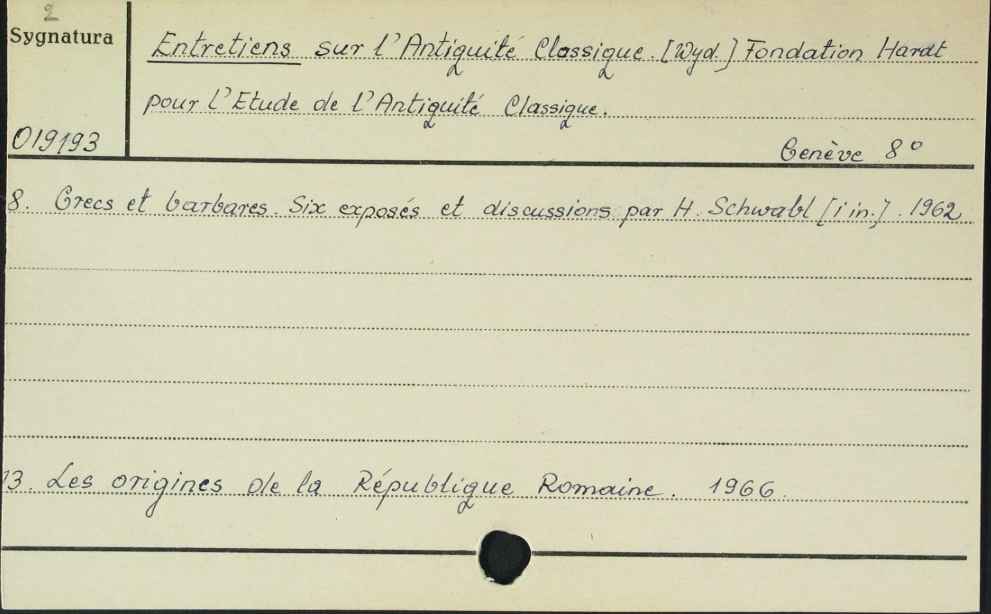 2
Sygnatura
Entretiens sur l'Antiquité Classique. [Wyd.] Fondation Hardt
pour l'Etude de l'Antiquité Classique.
019193
Genève 8°
8. Grecs et barbares. Six exposés et discussions par H. Schwabl [i in.]. 1962
13. Les origines de la République Romaine. 1966.